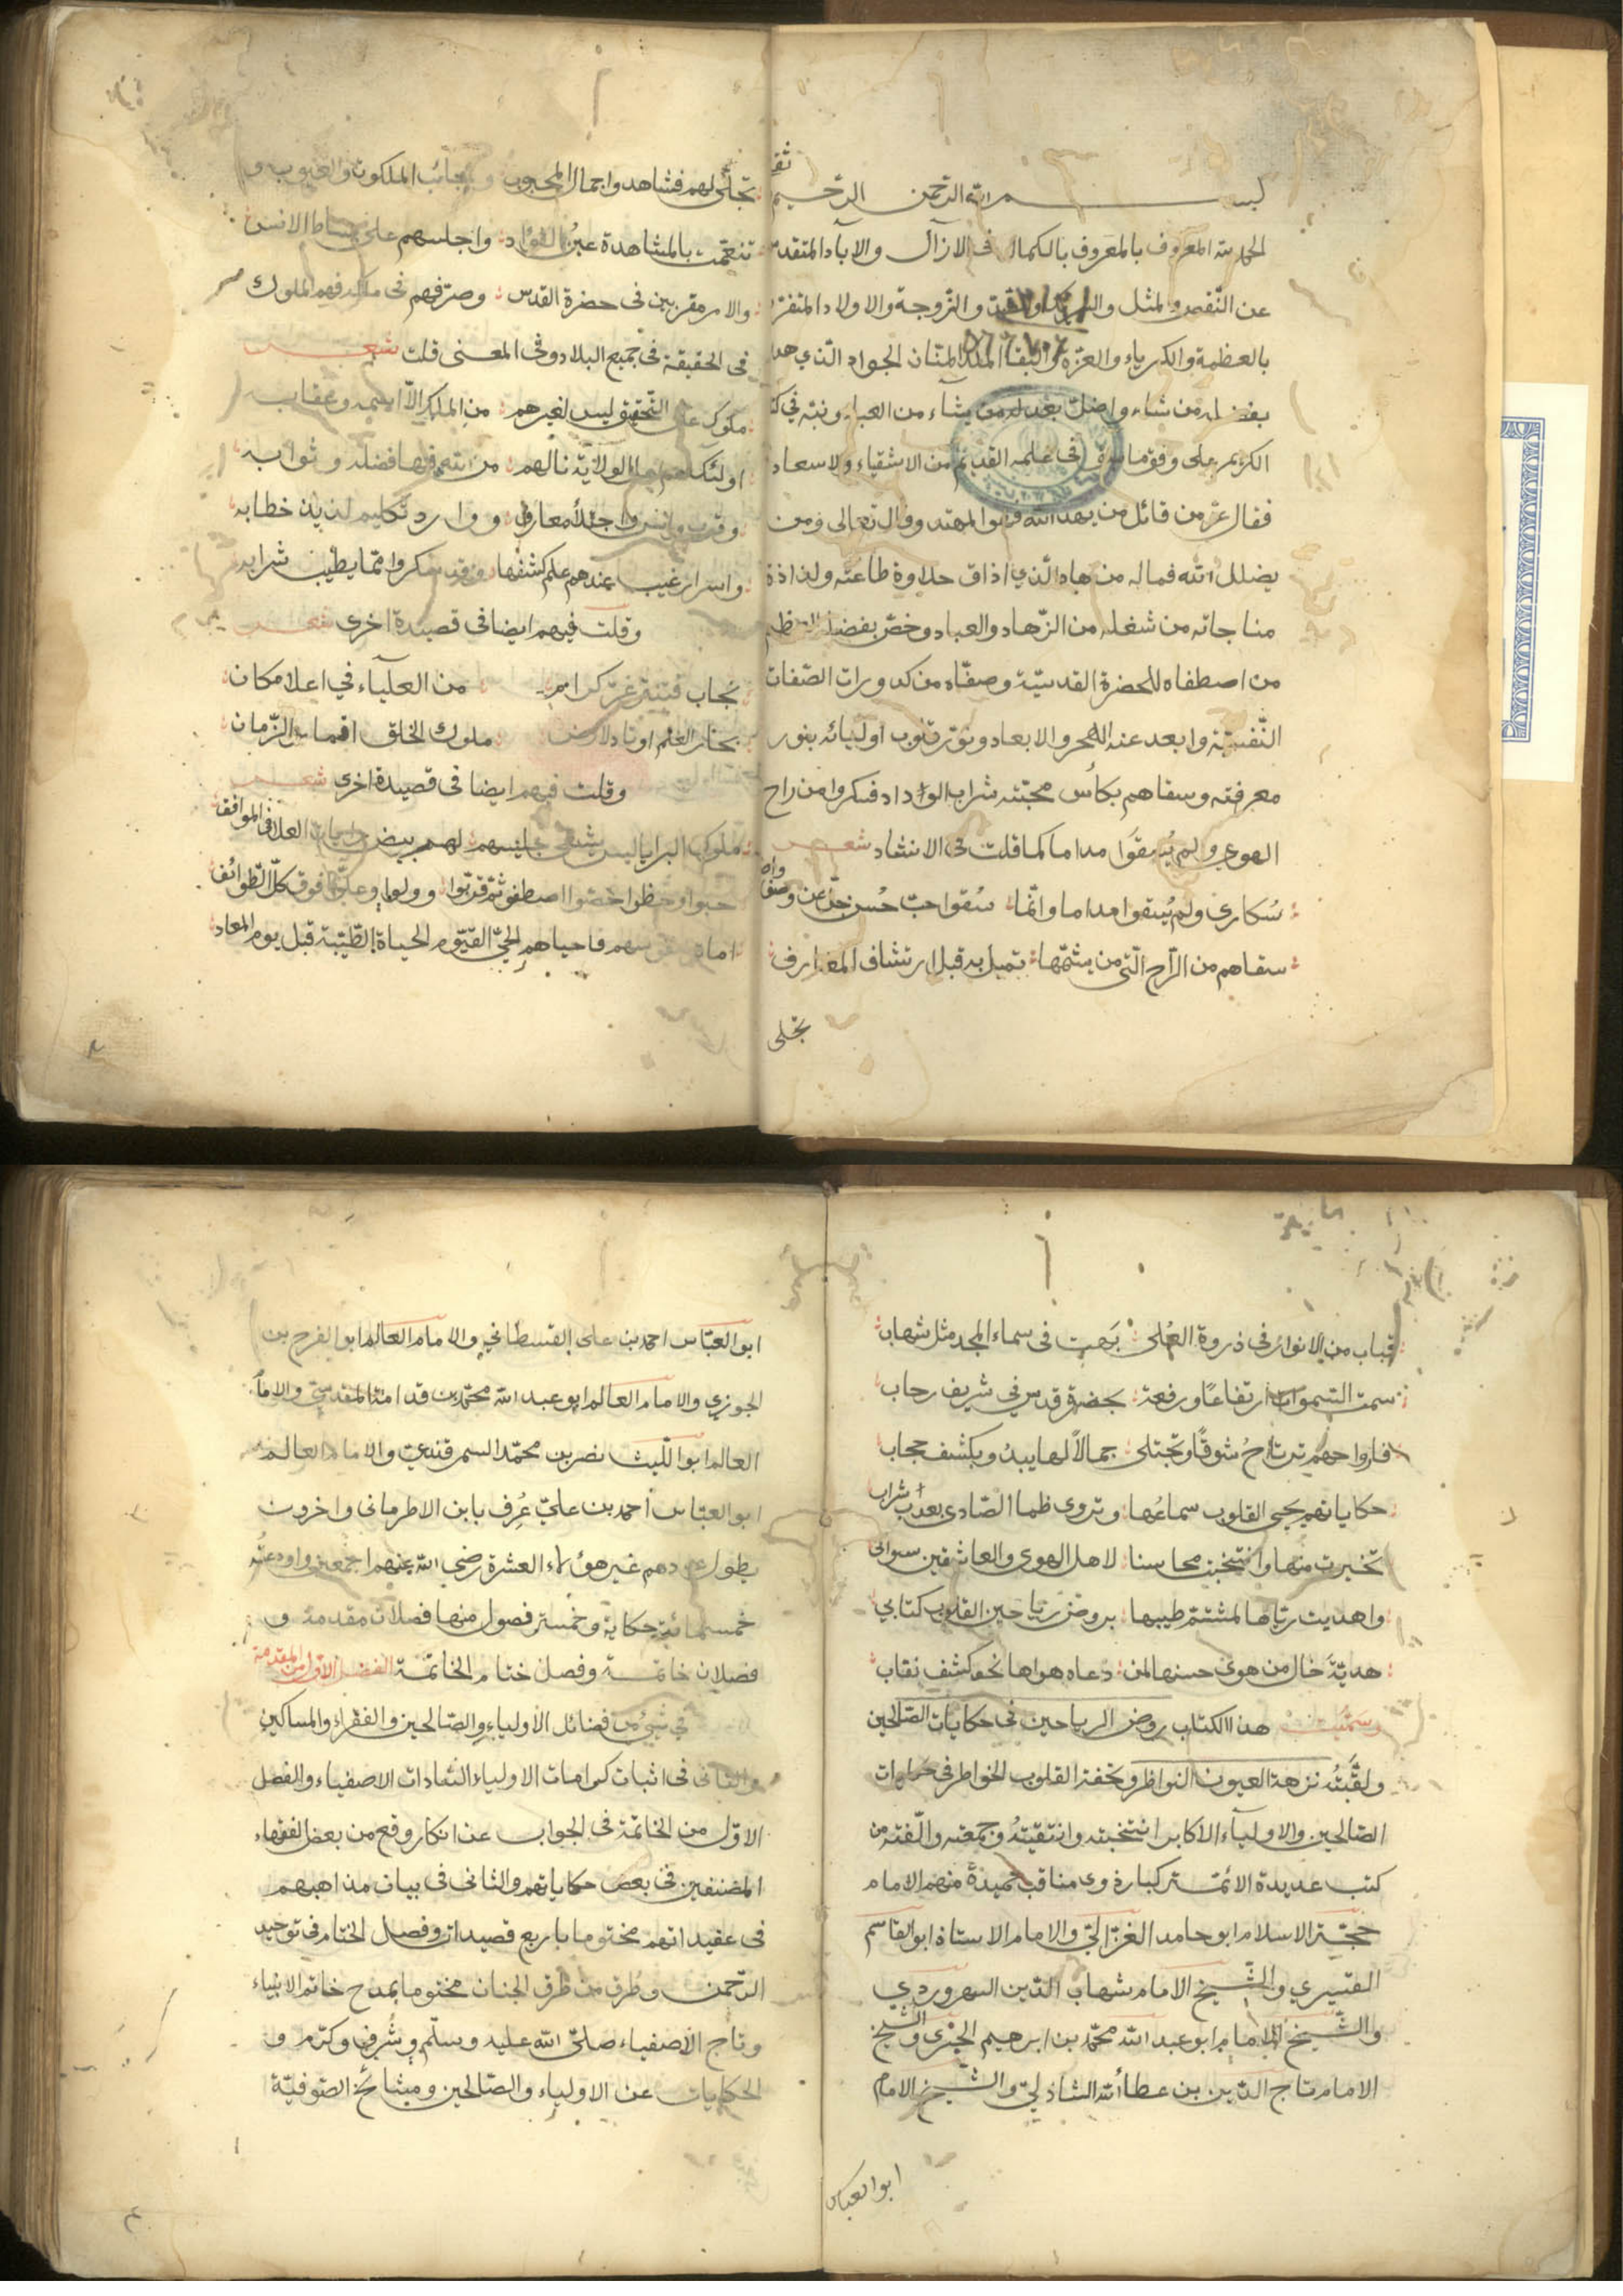 بسم الله الرحمن الرحيم
الحمد لله المعروف بالمعروف بالكمال فى الازال والاباد المتقدس
عن النّقص والمثل والشريك والضد والزّوجة والاولاد المتفرد
بالعظمة والكبرياء والعزة والبقاء الملك المنّان الجواد الّذي هدا
بفضله من شاء واضل بعدله من يشاء من العباد ونبه في كتابه
الكريم على وفق ما سبق فى علمه القديم من الاشقياء والاسعاد
فقال عزّ من قائل من يهد الله فهو المهتد وقال تعالى ومن
يضلل الله فما له من هاد الّذي اذاق حلاوة طاعته ولذاذة
مناجاته من شغله من الزّهاد والعباد وخصّ بفضله العظيم
من اصطفاه للحضرة القدسيّة وصفّاه من كدورات الصّفات
النّفسيّة وابعد عنه الهجر والابعاد ونوّر قلوب اوليائه بنور
معرفته وسقاهم بكأس محبّته شراب الوداد فسكروا من راح
الهوى ولم يُسقَوا مداما كما قلت فى الانشاد شعر
سُكارى ولم يُسقوا مداما وانّما سُقوا حبّ حُسن جلّ عن وصف واصف
سقاهم من الرّاح الّتى من يشمّها تميل به قبل ارتشاف المغارف
تجلى
تجلّى لهم فشاهدوا جمال المحبوب وعجائب الملكوت والغيوب و
تنعّمت بالمشاهدة عين الفؤاد واجلسهم على بساط الانس
والامر مقربين فى حضرة القدس وصرّفهم فى ملكه فهم الملوك
فى الحقيقة فى جميع البلاد وفى المعنى قلت شعر
ملوك على التّحقيق ليس لغيرهم من الملك الّا اسمه وعقابه
اولئك هم اهل الولاية نالهم من الله فيها فضله وثوابه
وقرب وانس واجتلا معارف ووارد تكليم لذيذ خطابه
واسرار غيب عندهم علم كشفها وقد سكروا ممّا يطيب شرابه
وقلت فيهم ايضا فى قصيدة اخرى شعر
من العلياء في اعلا مكان
بحار العلم اوتاد لارض ملوك الخلق اقمار الزّمان
وقلت فيهم ايضا فى قصيدة اخرى شعر
ملوك البرايا ليس يشقى جليسهم لهم بيض رايات العلا فى المواقف
حبوا وحظوا خصّوا اصطفوا ثم قرّبوا وولوا وعلّوا فوق كلّ الطّوائف
اماتهم فاحياهم الحيّ القيّوم الحياة الطّيّبة قبل يوم المعاد
قباب من الانوار فى ذروة العُلى زهت فى سماء المجد مثل شهاب
سمت السموات ارتفاعًا ورفعة بحضرة قدس في شريف رحاب
فارواحهم ترتاحُ شوقًا وتجتلى جمالاً لها يبدُ ويكشف حجاب
حكاياتهم يحيى القلوب سماعُها وتروى ظما الصّادى بعذب شراب
تخيرت منها وانتخبت محاسنا لاهل الهوى والعاشقين سوالى
واهديت ريّاها لمشتمّ طيبها بروض رياحين القلوب كتابي
هديّة خال من هوى حسنها لمن دعاه هواها نحو كشف نقاب
وسمّيت هذا الكتاب روض الرياحين فى حكايات الصّالحين
ولقّبتُه نزهة العيون النواظر وتحفة القلوب الخواطر فى حكايات
الصّالحين والاولياء الاكابر انتخبته وانتقيتُه وجمعته والّفته من
كتب عديدة الائمّة كبار ذوى مناقب حميدة منهم الامام
حجّة الاسلام ابو حامد الغزّاليّ والامام الاستاذ ابو القاسم
القشيري والشّيخ الامام شهاب الدّين السهروردي
والشّيخ الامام ابو عبد الله محمّد بن ابرهيم الخنجرى والشّيخ
الامام تاج الدّين بن عطاء الله الشاذليّ والشّيخ الامام
ابو العباس
ابو العبّاس احمد بن على القسطلاني والامام العالم ابو الفرج بن
الجوزي والامام العالم ابو عبد الله محمّد بن قدامة المقدسيّ والامام
العالم ابو اللّيث نصر بن محمّد السمرقندي والامام العالم
ابو العبّاس أحمد بن عليّ عُرِف بابن الاطرمانى واخرون
يطول عددهم غير هؤلاء العشرة رضي الله عنهم اجمعين واودعتُه
خمسمائة حكاية وخمسة فصول منها فصلان مقدمة و
فصلان خاتمة وفصل ختام الخاتمة الفصل الاوّل من المقدمة
في شيئ من فضائل الأولياء والصّالحين والفقراء والمساكين
والثانى فى اثبات كرامات الاولياء السّادات الاصفياء والفصل
الاوّل من الخاتمة فى الجواب عن انكار وقع من بعض الفقهاء
المصنفين فى بعض حكاياتهم والثانى فى بيان مذاهبهم
فى عقيداتهم مختوما باربع قصيدات وفصل الختام فى توحيد
الرّحمن وطُرق من ظرق الجنان مختوما بمدح خاتم الانبياء
وتاج الأصفياء صلّى الله عليه وسلّم وشُرف وكرّم و
الحكايات عن الاولياء والصّالحين ومشائخ الصّوفيّة